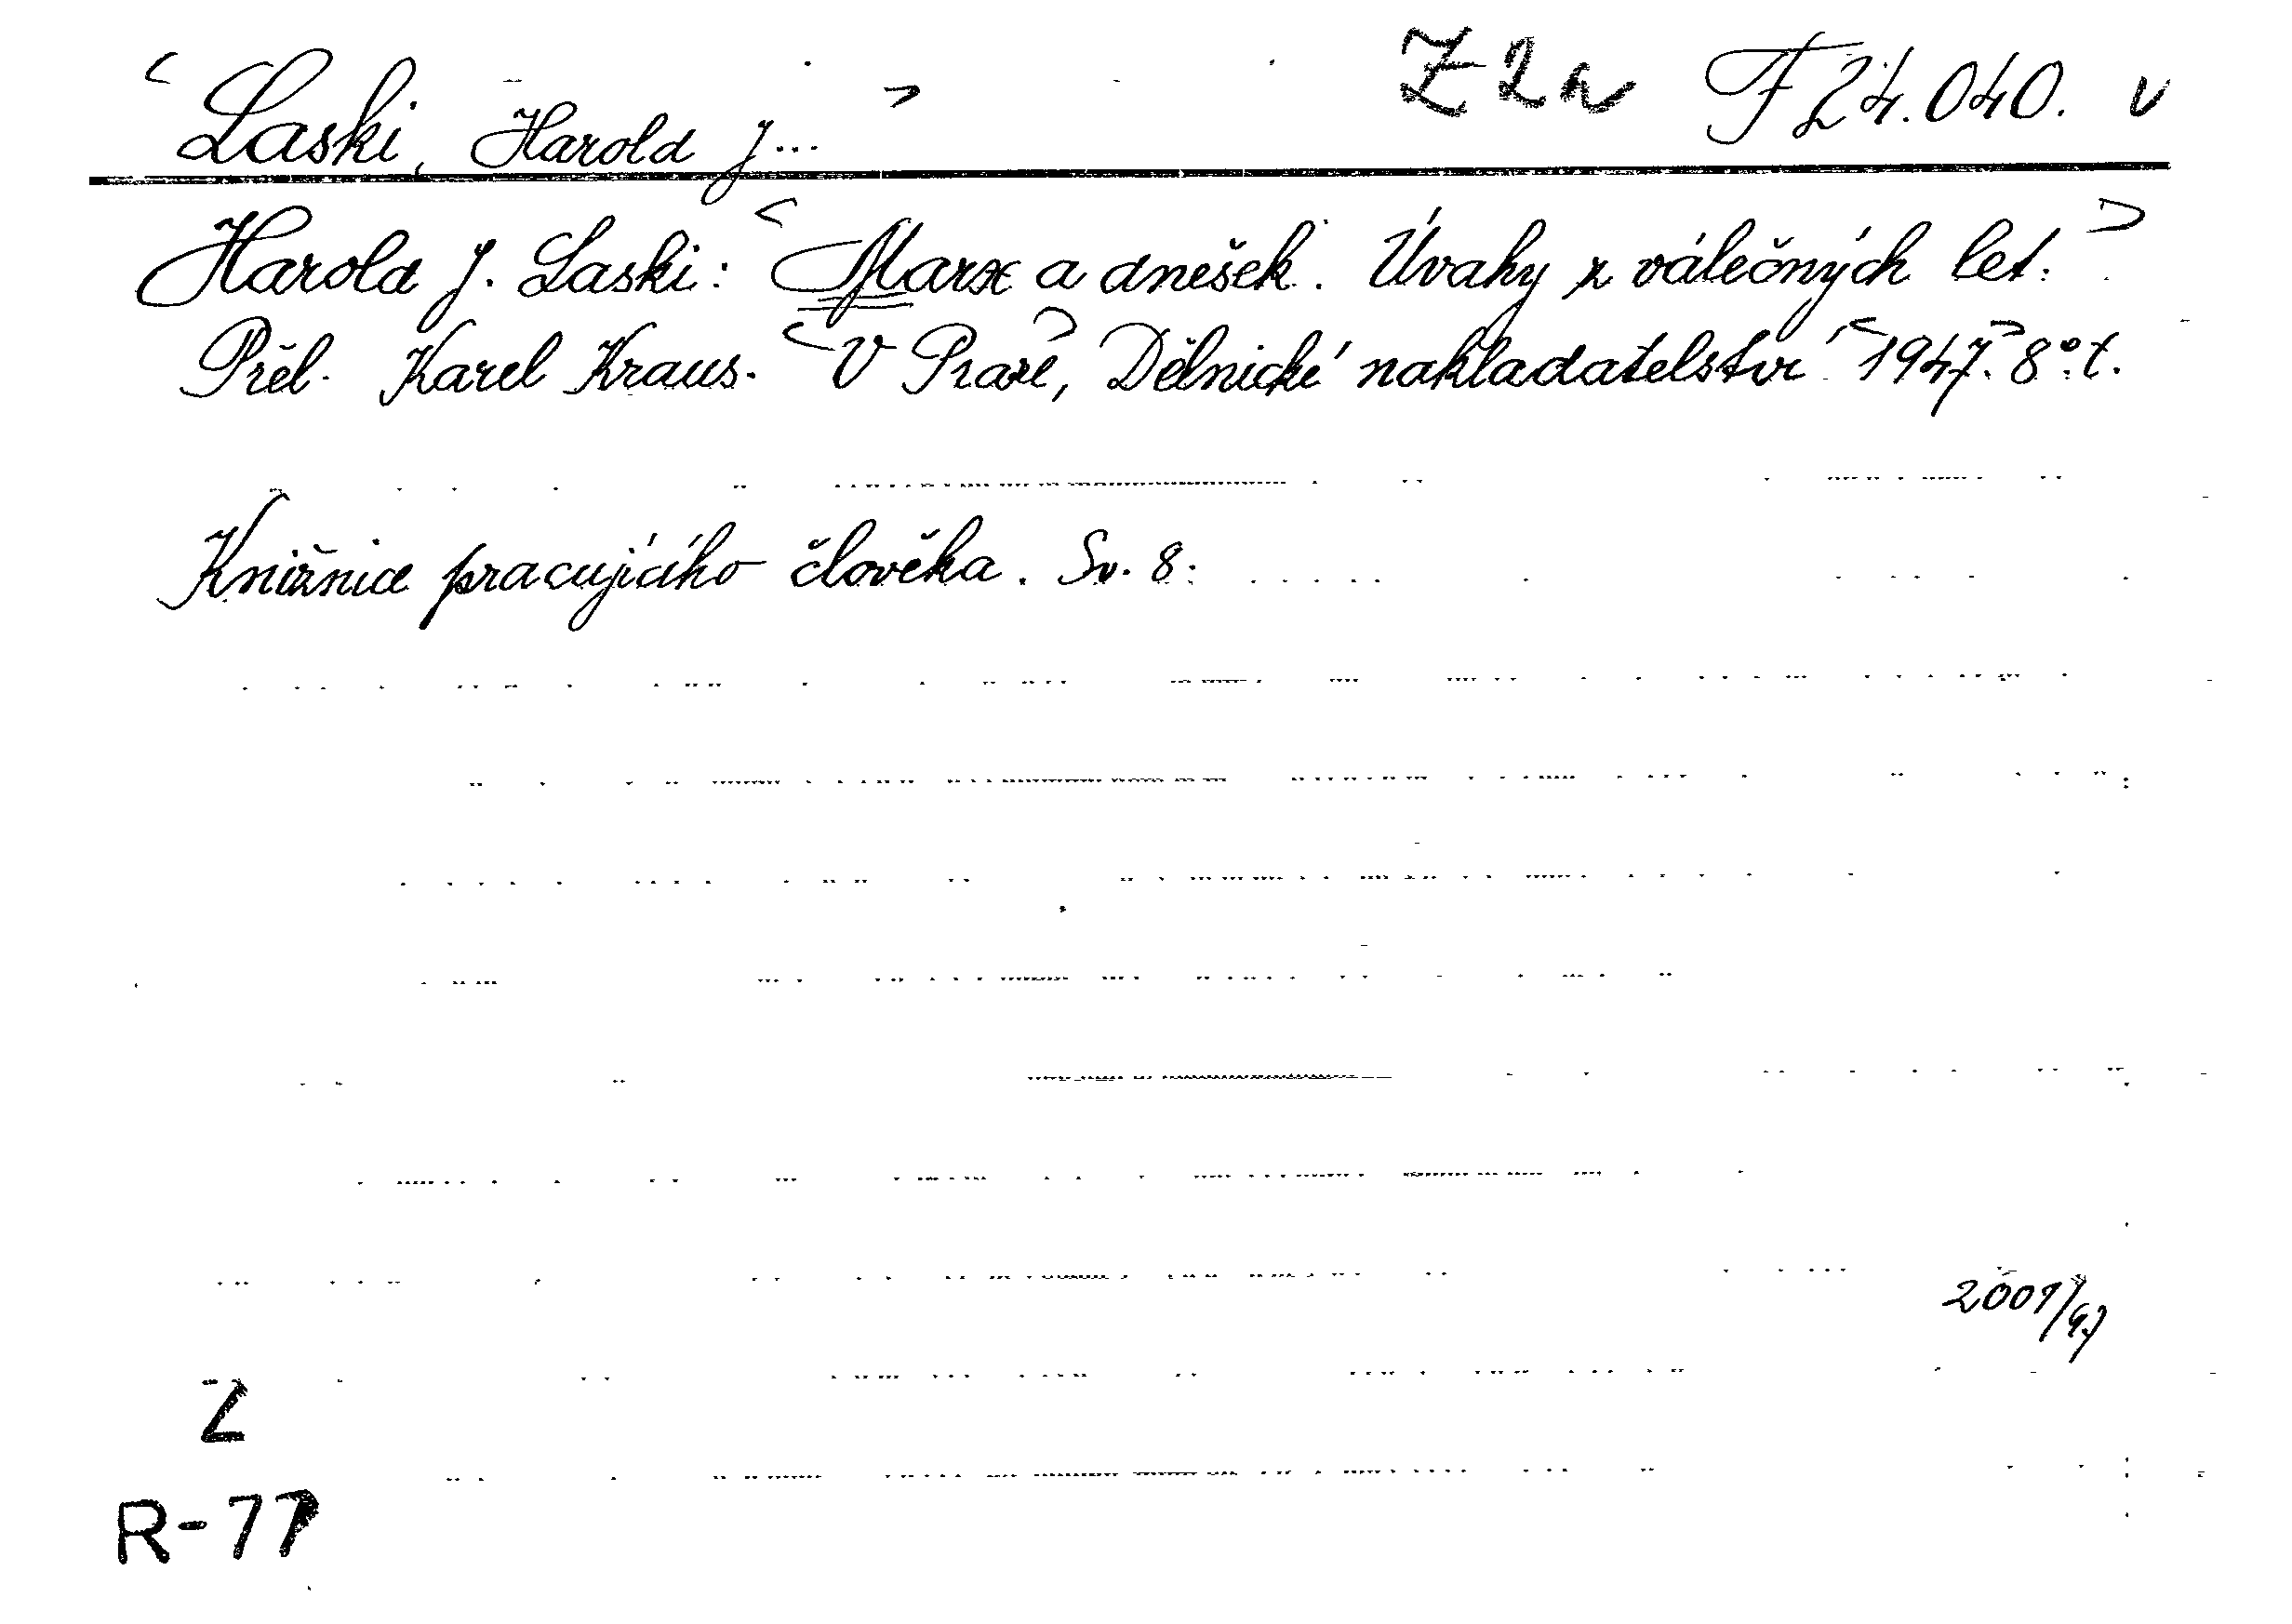 Laski, Harold J... Z 2a F 24.040. v
Harold J. Laski: Marx a dnešek. Úvahy z válečných let.
Přel. Karel Kraus. V Praze, Dělnické nakladatelství 1947. 8°. t.
Knižnice pracujícího člověka. Sv. 8.
Z
R-77